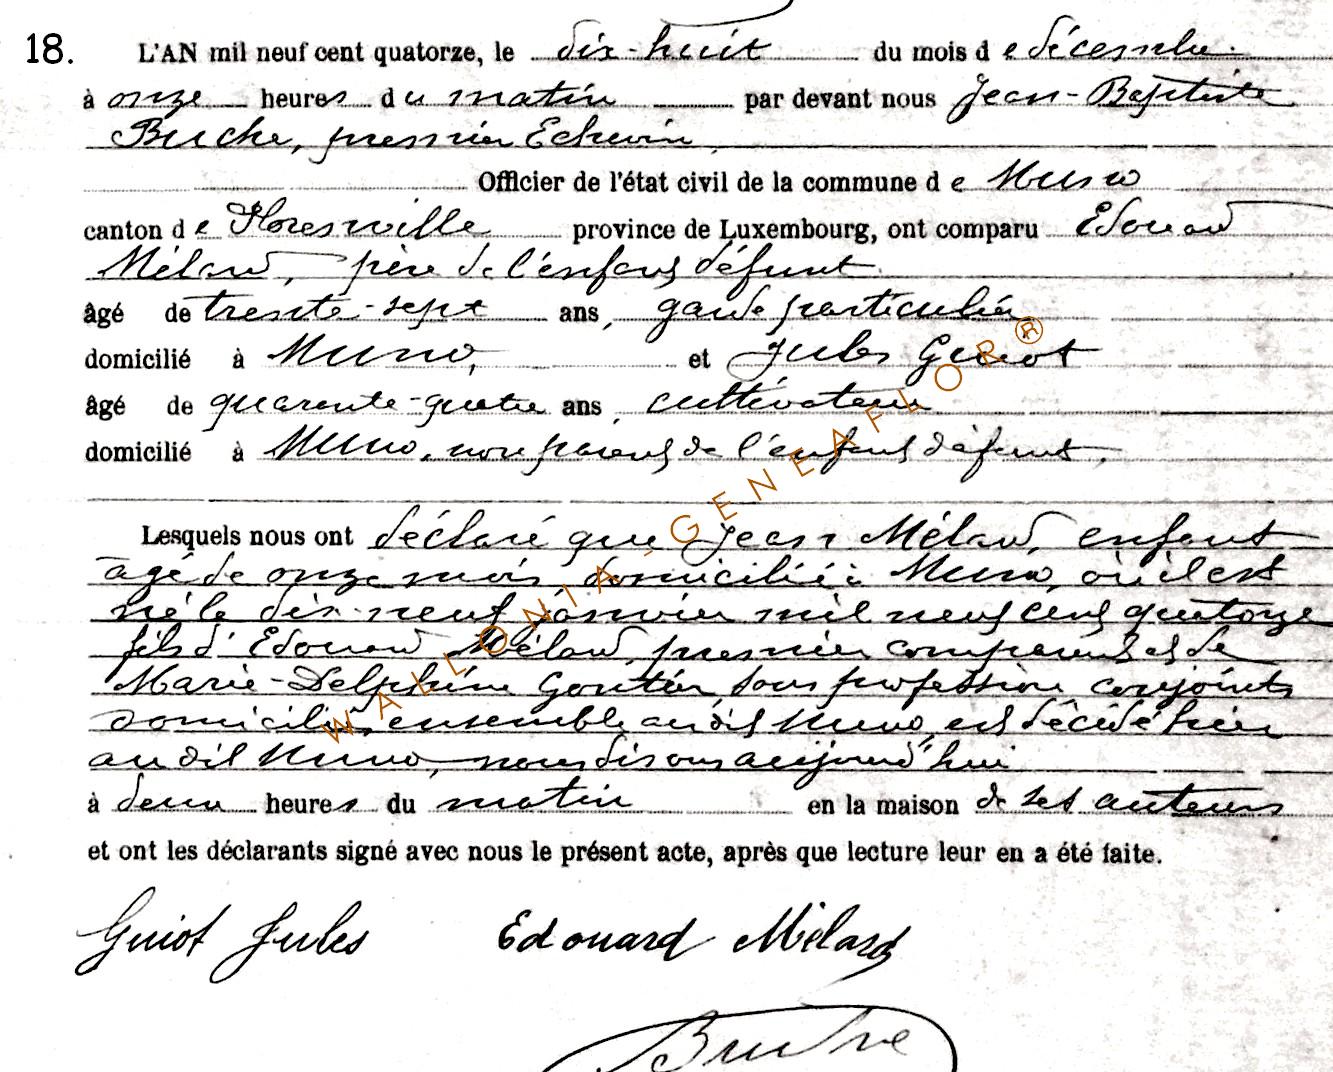 18. L'AN mil neuf cent quatorze, le dix-huit du mois de décembre
à onze heures du matin par devant nous Jean-Baptiste
premier Echevin,
Officier de l'état civil de la commune de Muno
canton de Florenville province de Luxembourg, ont comparu Edouard
Mélard, père de l'enfant défunt
âgé de trente-sept ans, garde particulier
domicilié à Muno, et Jules Guiot
âgé de quarante-quatre ans cultivateur
domicilié à Muno, non parent de l'enfant défunt.
Lesquels nous ont déclaré que Jean Mélard, enfant
âgé de onze mois domicilié à Muno, où il est
né le dix-neuf janvier mil neuf cent quatorze
fils d'Edouard Mélard, premier comparant et de
Marie-Delphine Goutier sans profession conjoints
domiciliés ensemble au dit Muno, est décédé hier
au dit Muno, nous disons aujourd'hui
à deux heures du matin en la maison de ses auteurs
et ont les déclarants signé avec nous le présent acte, après que lecture leur en a été faite.
Guiot Jules Edouard Mélard
WALLONIA-GENEAFLOR®